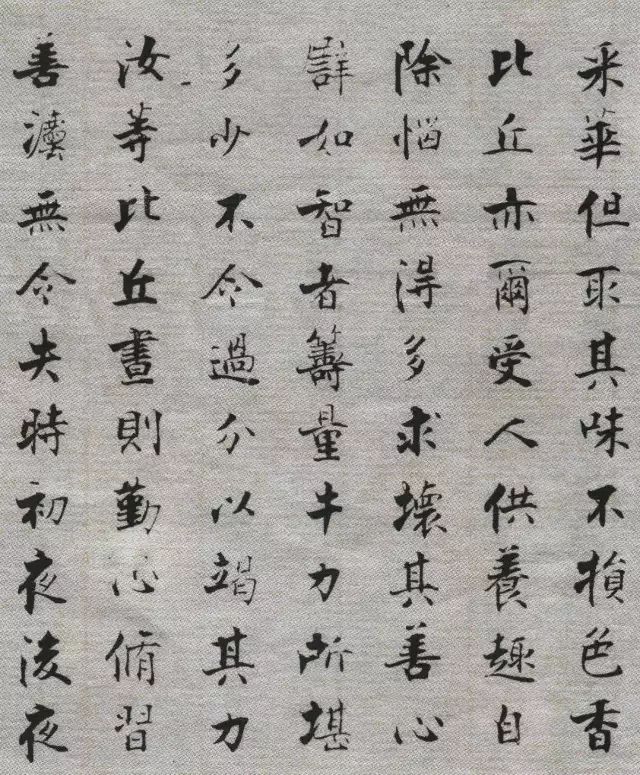 采華但取其味不損色香
比丘亦爾受人供養趣自
除惱無得多求壞其善心
譬如智者籌量牛力所堪
多少不令過分以竭其力
汝等比丘晝則勤心脩習
善法無令失時初夜後夜